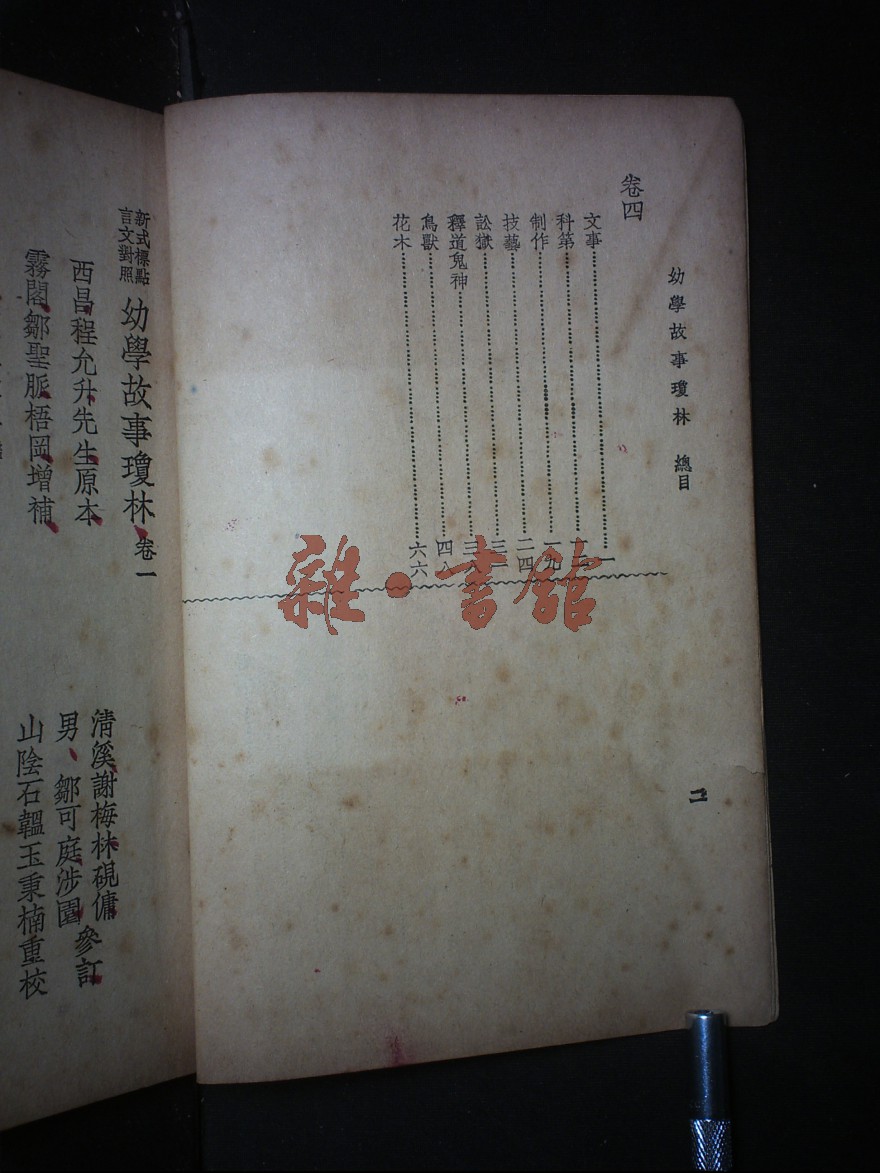 幼學故事瓊林 總目
二
卷四
文事……一
科第……
制作……一九
技藝……二四
訟獄……三一
釋道鬼神……三
鳥獸……四八
花木……六六
雜·書館
新式標點
言文對照
幼學故事瓊林 卷一
西昌程允升先生原本
霧閣鄒聖脈梧岡增補
清溪謝梅林硯傭
男、鄒可庭涉園
參訂
山陰石韞玉秉楠重校